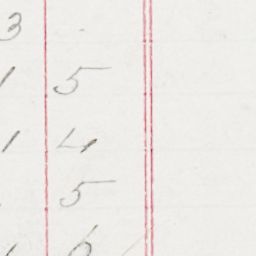 3
1 5
1 4
5
1 6